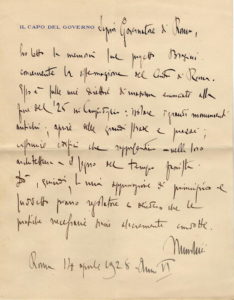 IL CAPO DEL GOVERNO Signor Governatore di Roma,
ho letto la memoria sul progetto Brasini
concernente la sistemazione del Centro di Roma.
sulle mie direttive di massima enunciate alla
fine del '25 in Campidoglio: isolare i grandi monumenti
antichi; aprire delle grandi strade e piazze;
edifici che rappresentino nella loro
architettura il segno del tempo fascista.
Dò, quindi, la mia approvazione di principio al
progetto piano regolatore e desidero che le
pratiche necessarie siano alacremente condotte.
Mussolini
Roma 14 aprile 1928 Anno VI